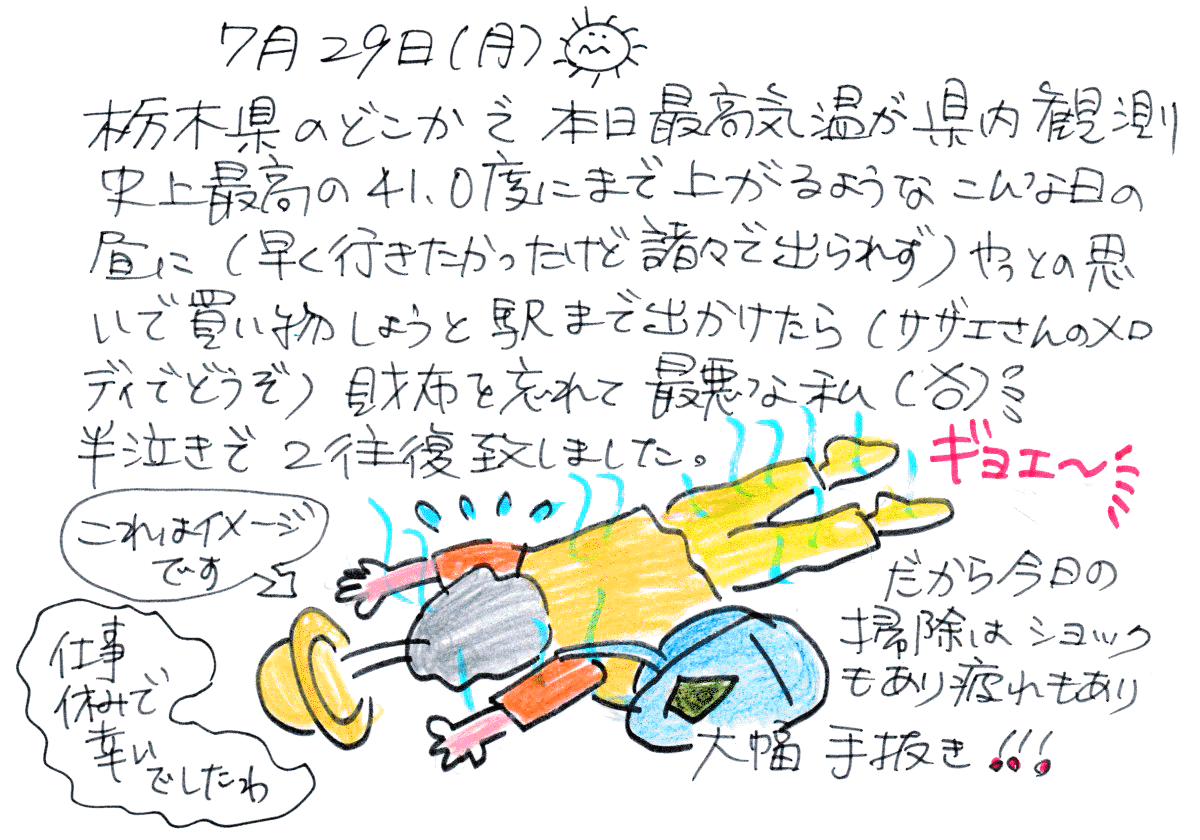 7月29日(月)
栃木県のどこかで本日最高気温が県内観測
史上最高の41.0度にまで上がるようなこんな日の
昼に(早く行きたかったけど諸々で出られず)やっとの思
いで買い物しようと駅まで出かけたら(サザエさんのメロ
ディでどうぞ)財布を忘れて最悪な私(谷)
半泣きで2往復致しました。
ギョエ〜
これはイメージ
です
仕事
休みで
幸い
でしたわ
だから今日の
掃除はショック
もあり疲れもあり
大幅手抜き!!!